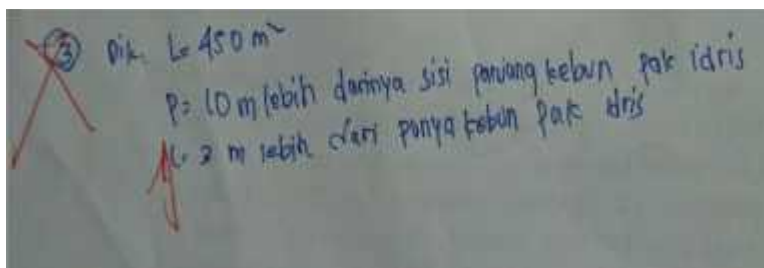 ③ Dik. L = 450 m²
P = 10 m lebih darinya sisi panjang kebun pak idris
L. 2 m lebih dari punya kebun pak idris